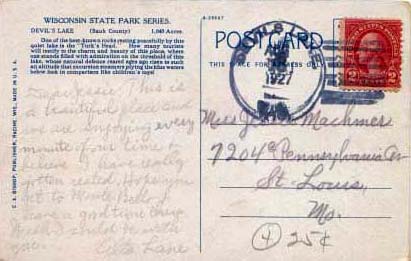 WISCONSIN STATE PARK SERIES.
DEVIL'S LAKE (Sauk County) 1,040 Acres.
One of the best-known rocks resting peacefully by this
quiet lake is the "Turk's Head." How many tourists
will testify to the charm and beauty of this place, where
one stands filled with admiration on the threshold of this
lake, whose natural defence reared ages ago rises to such
an altitude that excursion steamers plying the lilac waters
below look in comparison like children's toys!
C. A. BISHOP, PUBLISHER, RACINE, WIS., MADE IN U. S. A.
This is
a beautiful place and
we are enjoying every
minute of our time
believe I have really
gotten rested. Hope you
get to
have a good time
I could be with
you. Lane
POSTCARD
THIS PLACE FOR
1927
2 CENTS 2
Miss Machmer
7204 Pennsylvania Av
St. Louis,
Mo.
4 25¢